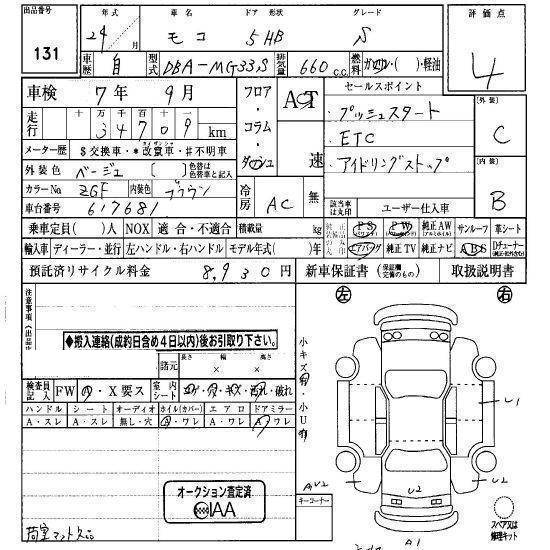 出品番号 131
年式 24年 月
車名 モコ
ドア 形状 5HB
グレード S
評価点 4
車歴 自
型式 DBA-MG33S
排気量 660 c.c.
燃料 ガソリン・( )・軽油
車検 7年 9月
フロア・コラム・ダッシュ
セールスポイント
プッシュスタート
ETC
アイドリングストップ
外装 C
内装 B
走行 十 万 千 百 十 一
3 4 7 0 9 km
メーター歴 $交換車・*改竄車・#不明車
外装色 ベージュ [ ] 色替は色替車と記入
カラーNo ZGF 内装色 ブラウン
車台番号 617681
AT 速
冷房 AC 無
該当車は丸印
ユーザー仕入車
乗車定員( )人 NOX 適合・不適合 積載量 kg
PS PW 純正AW サンルーフ 革シート
輸入車 ディーラー・並行 左ハンドル・右ハンドル モデル年式( )年
エアバッグ 純正TV 純正ナビ ABS Dチューナー
預託済リサイクル料金 8,930円
新車保証書 取扱説明書
注意事項
◆搬入連絡(成約日含め4日以内)後お引取り下さい。
諸元 長さ × 幅 × 高さ
左 右
小キズ有・小U有
検査員記入 FW ・X要ス 室内シート コゲ・穴・キズ・汚れ・破れ
ハンドル シート オーディオ ホイル(カバー) エアロ ドアミラー
A・スレ A・スレ 無し・穴 A・ワレ A・ワレ A・ワレ
U1
AU2
キーコーナー
オークション査定済
IAA
U2
U2
A1
スペアスは修理キット
荷室マット欠品